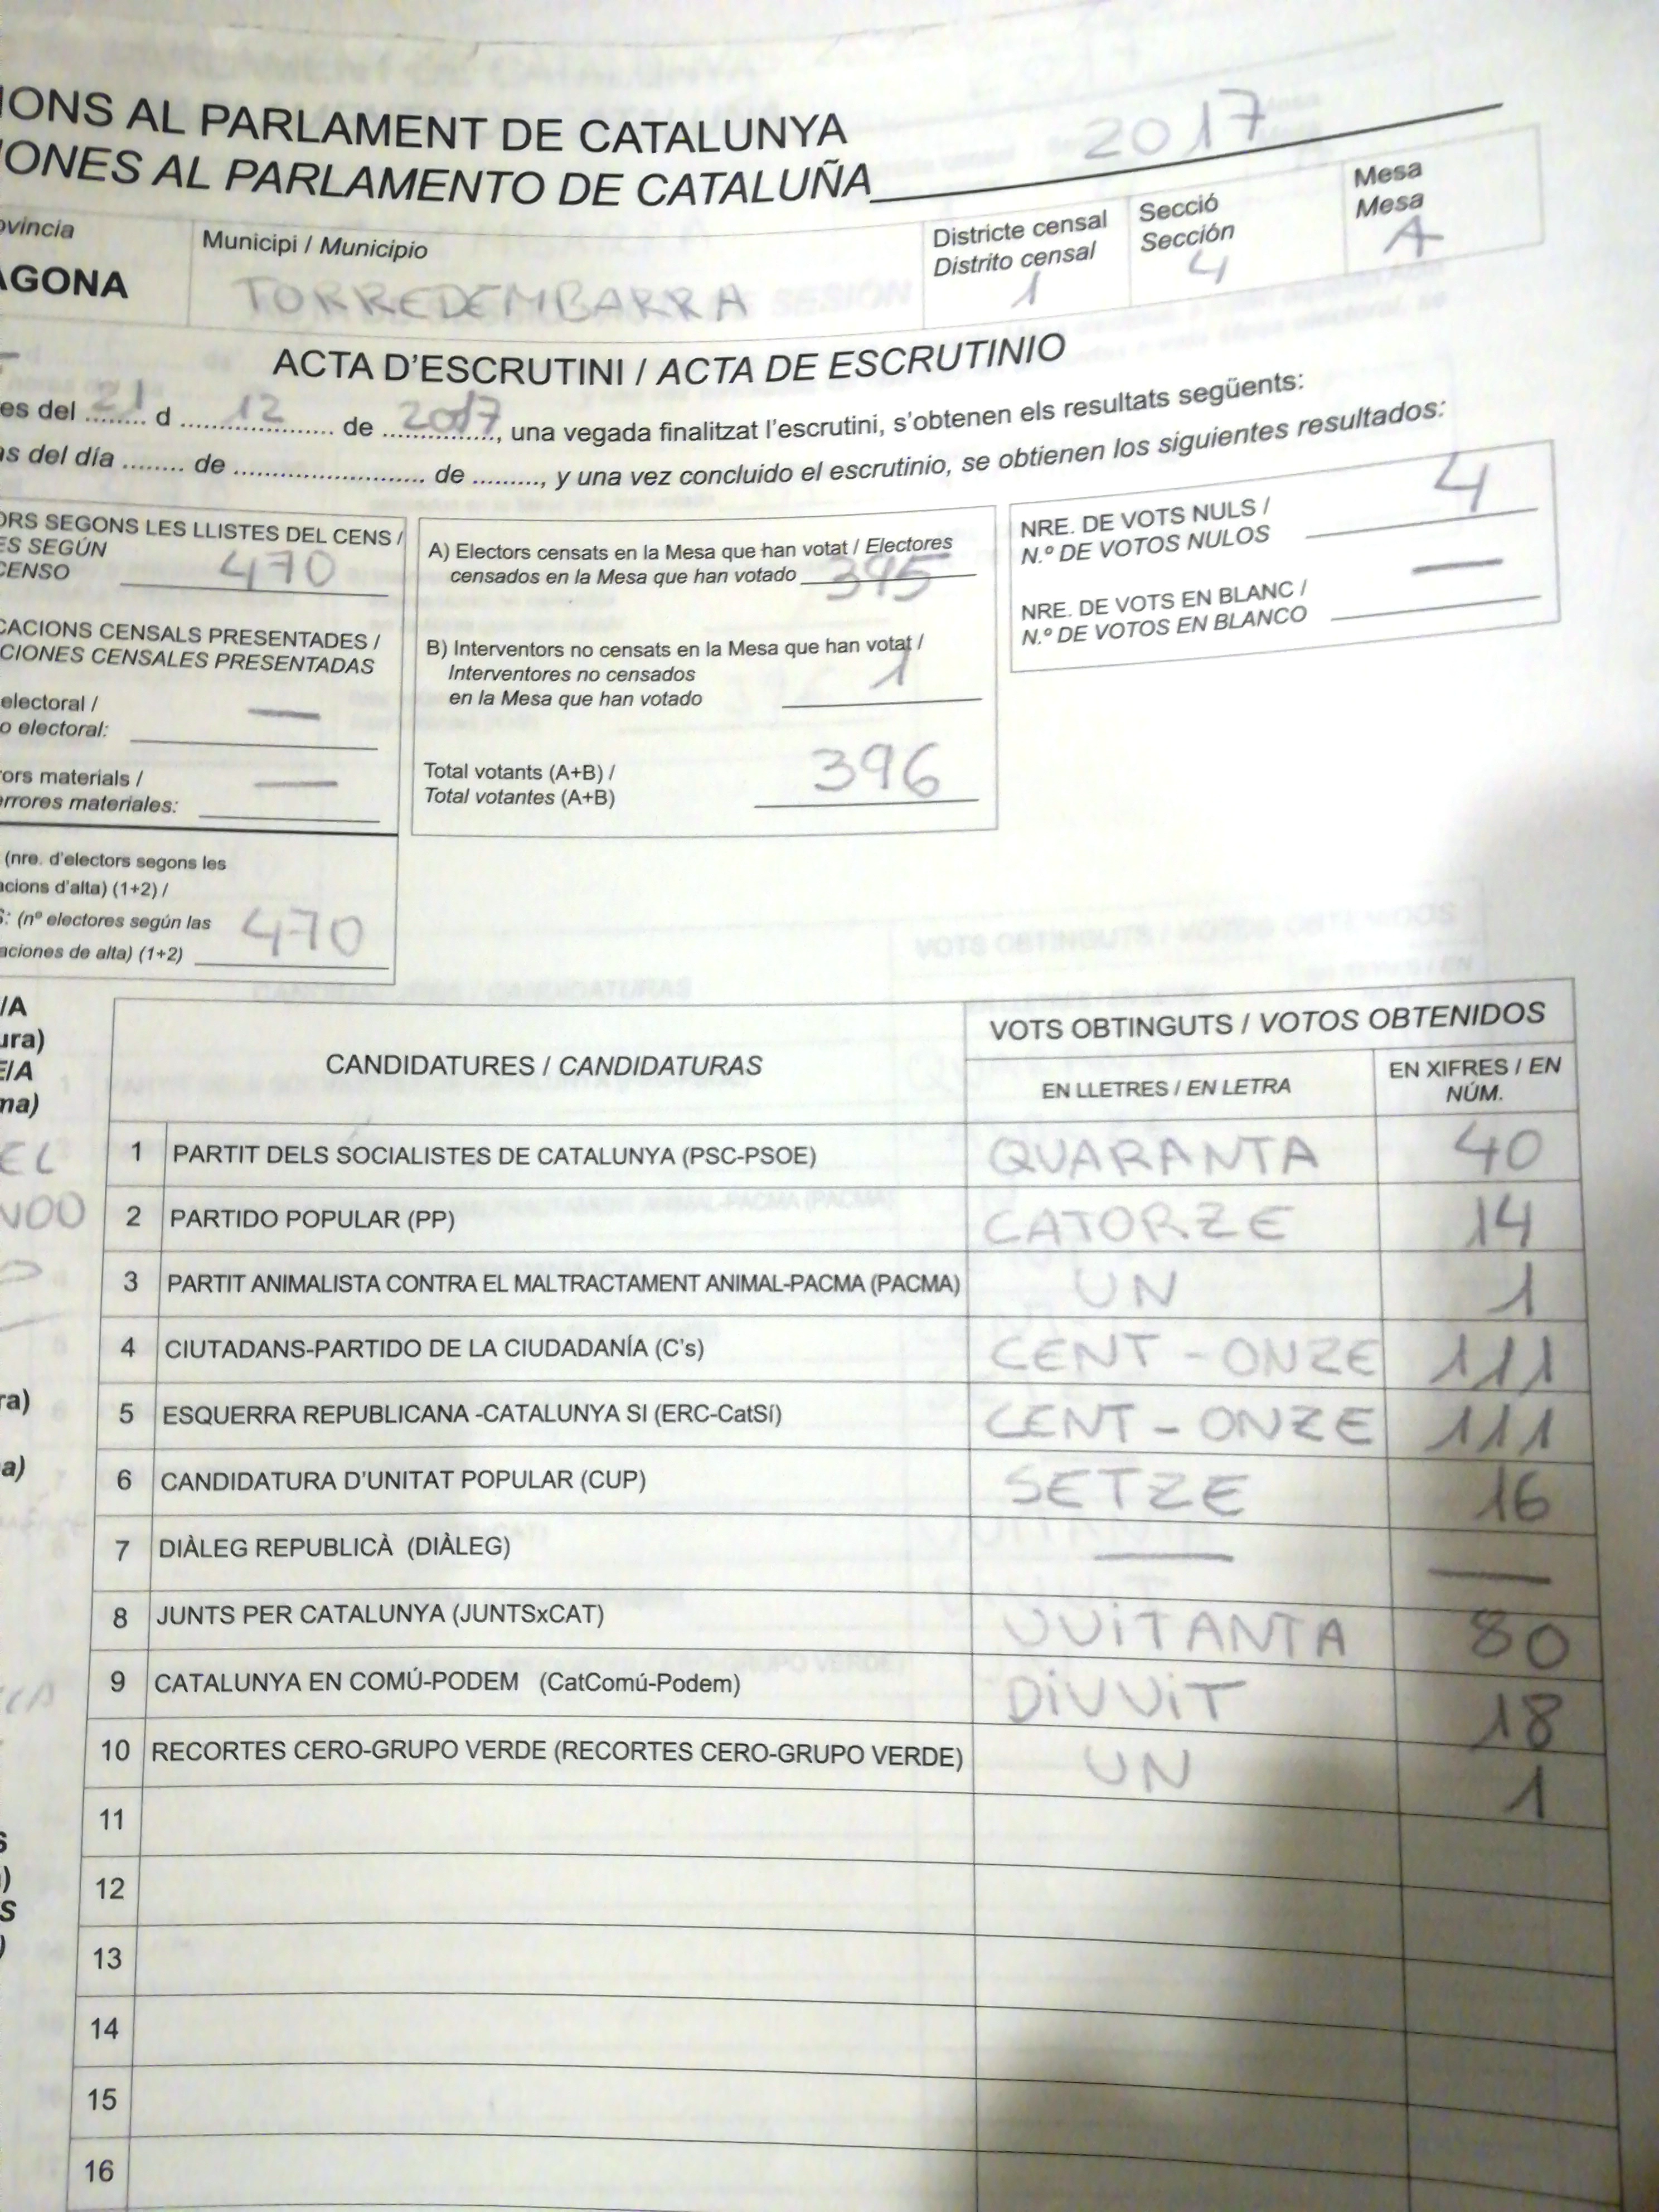 IONS AL PARLAMENT DE CATALUNYA
IONES AL PARLAMENTO DE CATALUÑA 2017
ovincia
AGONA
Municipi / Municipio
TORREDEMBARRA
Districte censal
Distrito censal
1
Secció
Sección
4
Mesa
Mesa
A
ACTA D'ESCRUTINI / ACTA DE ESCRUTINIO
es del 21 d 12 de 2017, una vegada finalitzat l'escrutini, s'obtenen els resultats següents:
as del día ........ de ........................ de ........., y una vez concluido el escrutinio, se obtienen los siguientes resultados:
ORS SEGONS LES LLISTES DEL CENS /
ES SEGÚN
CENSO 470
CACIONS CENSALS PRESENTADES /
CIONES CENSALES PRESENTADAS
electoral /
o electoral: —
ors materials /
errores materiales: —
(nre. d'electors segons les
acions d'alta) (1+2) /
S: (nº electores según las
aciones de alta) (1+2) 470
A) Electors censats en la Mesa que han votat / Electores
censados en la Mesa que han votado 395
B) Interventors no censats en la Mesa que han votat /
Interventores no censados
en la Mesa que han votado 1
Total votants (A+B) /
Total votantes (A+B) 396
NRE. DE VOTS NULS /
N.º DE VOTOS NULOS 4
NRE. DE VOTS EN BLANC /
N.º DE VOTOS EN BLANCO —
/A
ura)
E/A
na)
EL
NOO
ra)
a)
CANDIDATURES / CANDIDATURAS
VOTS OBTINGUTS / VOTOS OBTENIDOS
EN LLETRES / EN LETRA
EN XIFRES / EN
NÚM.
1 PARTIT DELS SOCIALISTES DE CATALUNYA (PSC-PSOE) QUARANTA 40
2 PARTIDO POPULAR (PP) CATORZE 14
3 PARTIT ANIMALISTA CONTRA EL MALTRACTAMENT ANIMAL-PACMA (PACMA) UN 1
4 CIUTADANS-PARTIDO DE LA CIUDADANÍA (C's) CENT - ONZE 111
5 ESQUERRA REPUBLICANA -CATALUNYA SI (ERC-CatSí) CENT - ONZE 111
6 CANDIDATURA D'UNITAT POPULAR (CUP) SETZE 16
7 DIÀLEG REPUBLICÀ (DIÀLEG) — —
8 JUNTS PER CATALUNYA (JUNTSxCAT) VUITANTA 80
9 CATALUNYA EN COMÚ-PODEM (CatComú-Podem) DIVUIT 18
10 RECORTES CERO-GRUPO VERDE (RECORTES CERO-GRUPO VERDE) UN 1
11
12
13
14
15
16